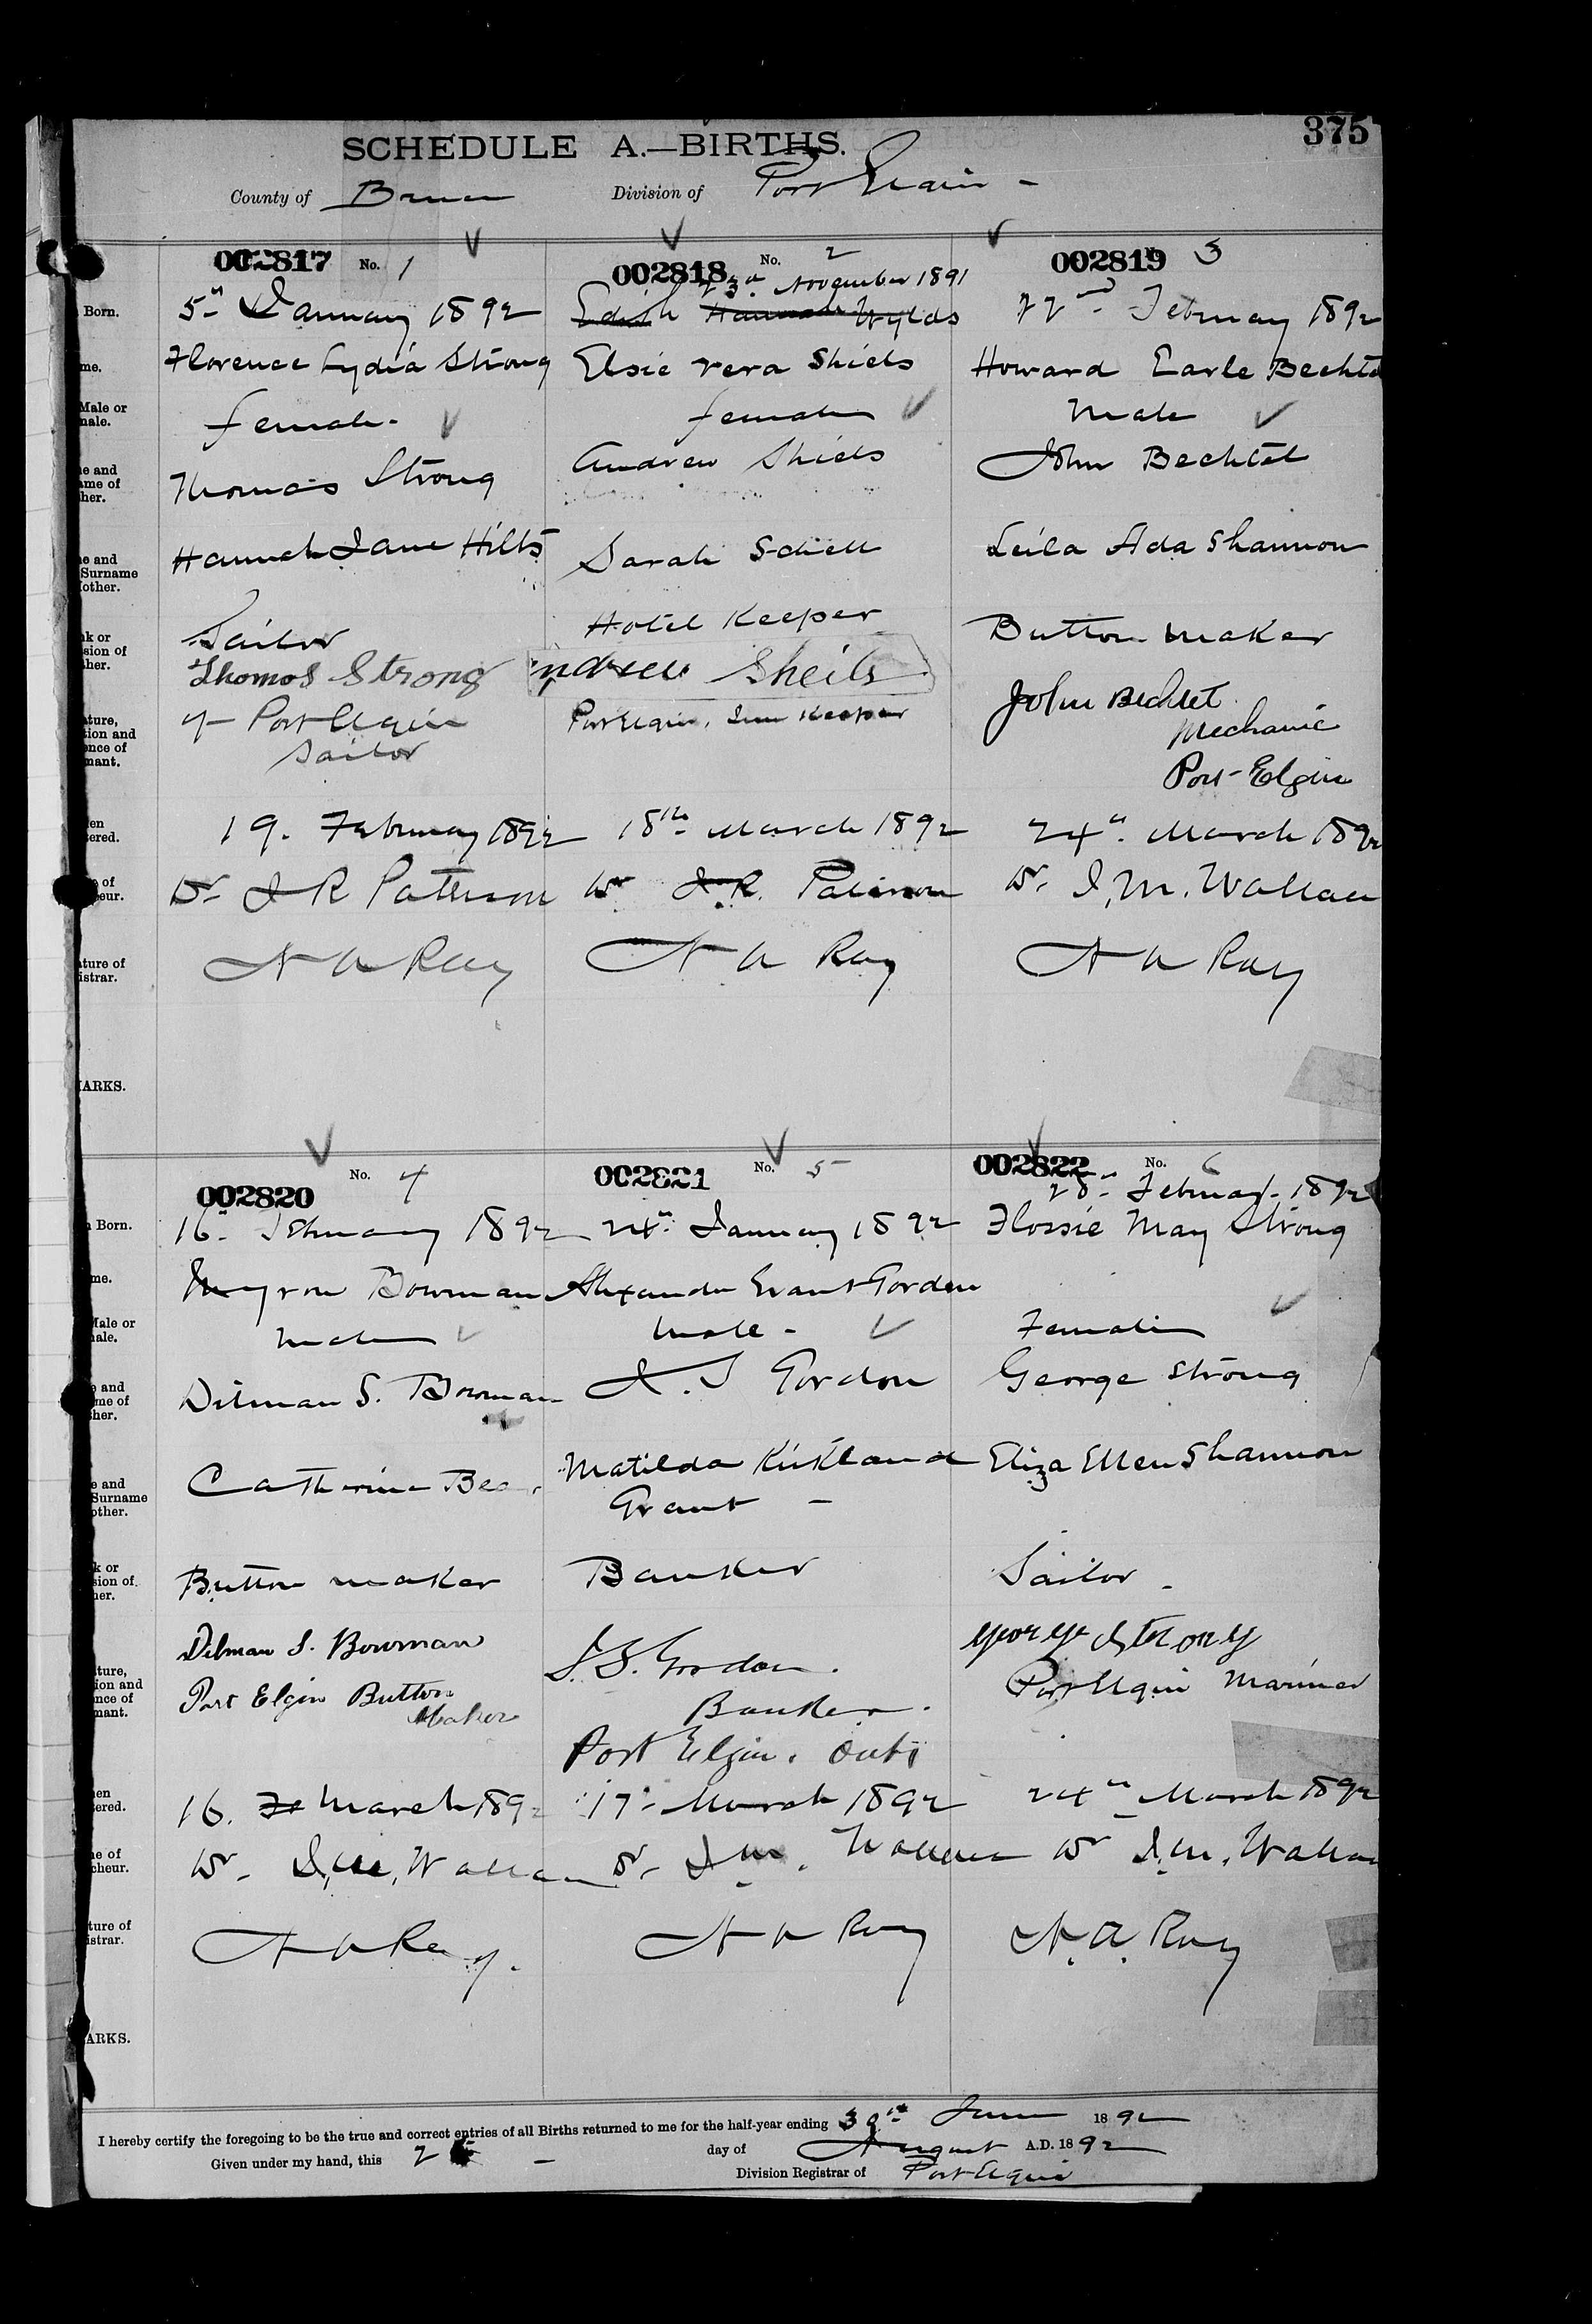 375
SCHEDULE A.—BIRTHS.
County of Bruce Division of Port Elgin -
002817 No. 1
5th January 1892
Florence Lydia Strong
female.
Thomas Strong
Hannah Jane Hilts
Sailor
Thomas Strong
Port Elgin
Sailor
19. February 1892
Dr J R Patterson
N A Ray
002818 No. 2
23d November 1891
Edith Hannah Wylds
Elsie Vera Shiels
female
Andrew Shiels
Sarah Schell
Hotel Keeper
ndrew Sheils
Port Elgin, Inn Keeper
18th March 1892
Dr J.R. Patterson
N A Ray
002819 3
22nd February 1892
Howard Earle Bechtel
Male
John Bechtel
Leila Ada Shannon
Button Maker
John Bechtel
Mechanic
Port-Elgin
24th March 1892
Dr. J. M. Wallace
N A Ray
Born.
me.
Male or
male.
e and
ame of
her.
e and
Surname
other.
k or
sion of
her.
ature,
tion and
ence of
mant.
en
ered.
of
eur.
ature of
istrar.
ARKS.
002820 No. 4
16th February 1892
Myron Bowman
Male
Dilman S. Bowman
Catherine
Button maker
Dilman S. Bowman
Port Elgin Button
Maker
16. Fe March 1892
Dr. J. M. Wallace
N A Ray.
002821 No. 5
24th January 1892
Alexander Grant Gordon
Male -
J. S Gordon
Matilda Kirkland
Grant -
Banker
J. S. Gordon.
Banker.
Port Elgin. Ont
17th March 1892
Dr. J M. Wallace
N A Ray
002822 No. 6
28th February 1892
Flossie May Strong
Female
George Strong
Eliza Ellen Shannon
Sailor -
George Strong
Port Elgin Mariner
24th March 1892
Dr J. M. Wallace
N. A. Ray
Born.
me.
Male or
ale.
e and
me of
her.
e and
Surname
other.
k or
sion of
her.
ture,
ion and
nce of
mant.
en
ered.
e of
cheur.
ture of
istrar.
ARKS.
I hereby certify the foregoing to be the true and correct entries of all Births returned to me for the half-year ending 30th June 1892
Given under my hand, this 2 day of August A.D. 1892
Division Registrar of Port Elgin